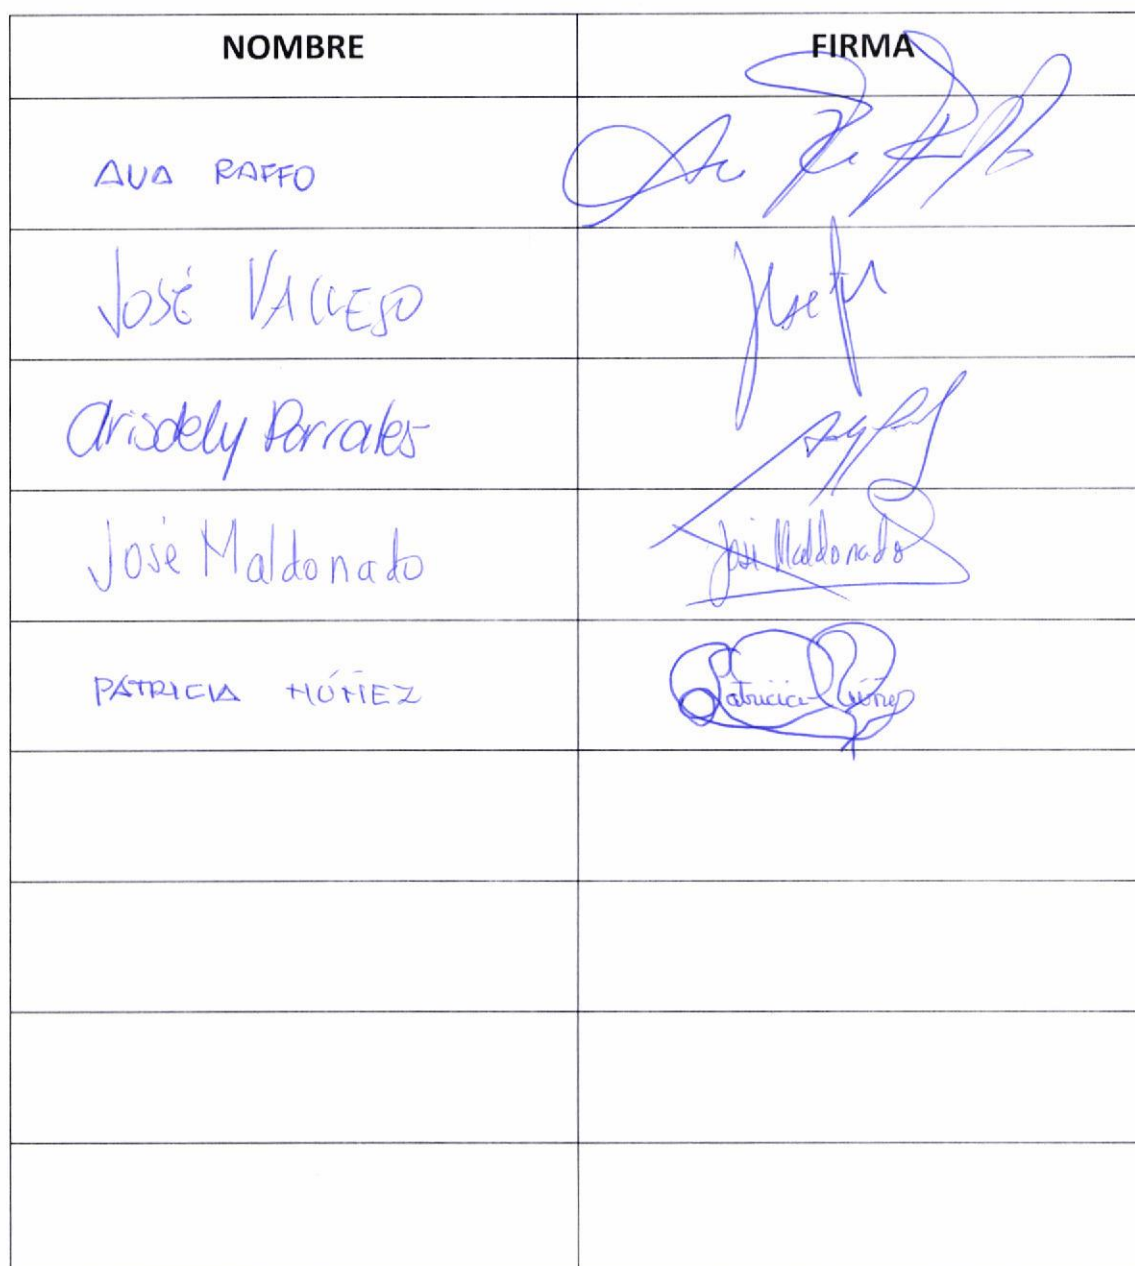 NOMBRE FIRMA
ANA RAFFO
JOSÉ VALLEJO
Arisdely Parrales
José Maldonado José Maldonado
PATRICIA NÚÑEZ Patricia Núñez